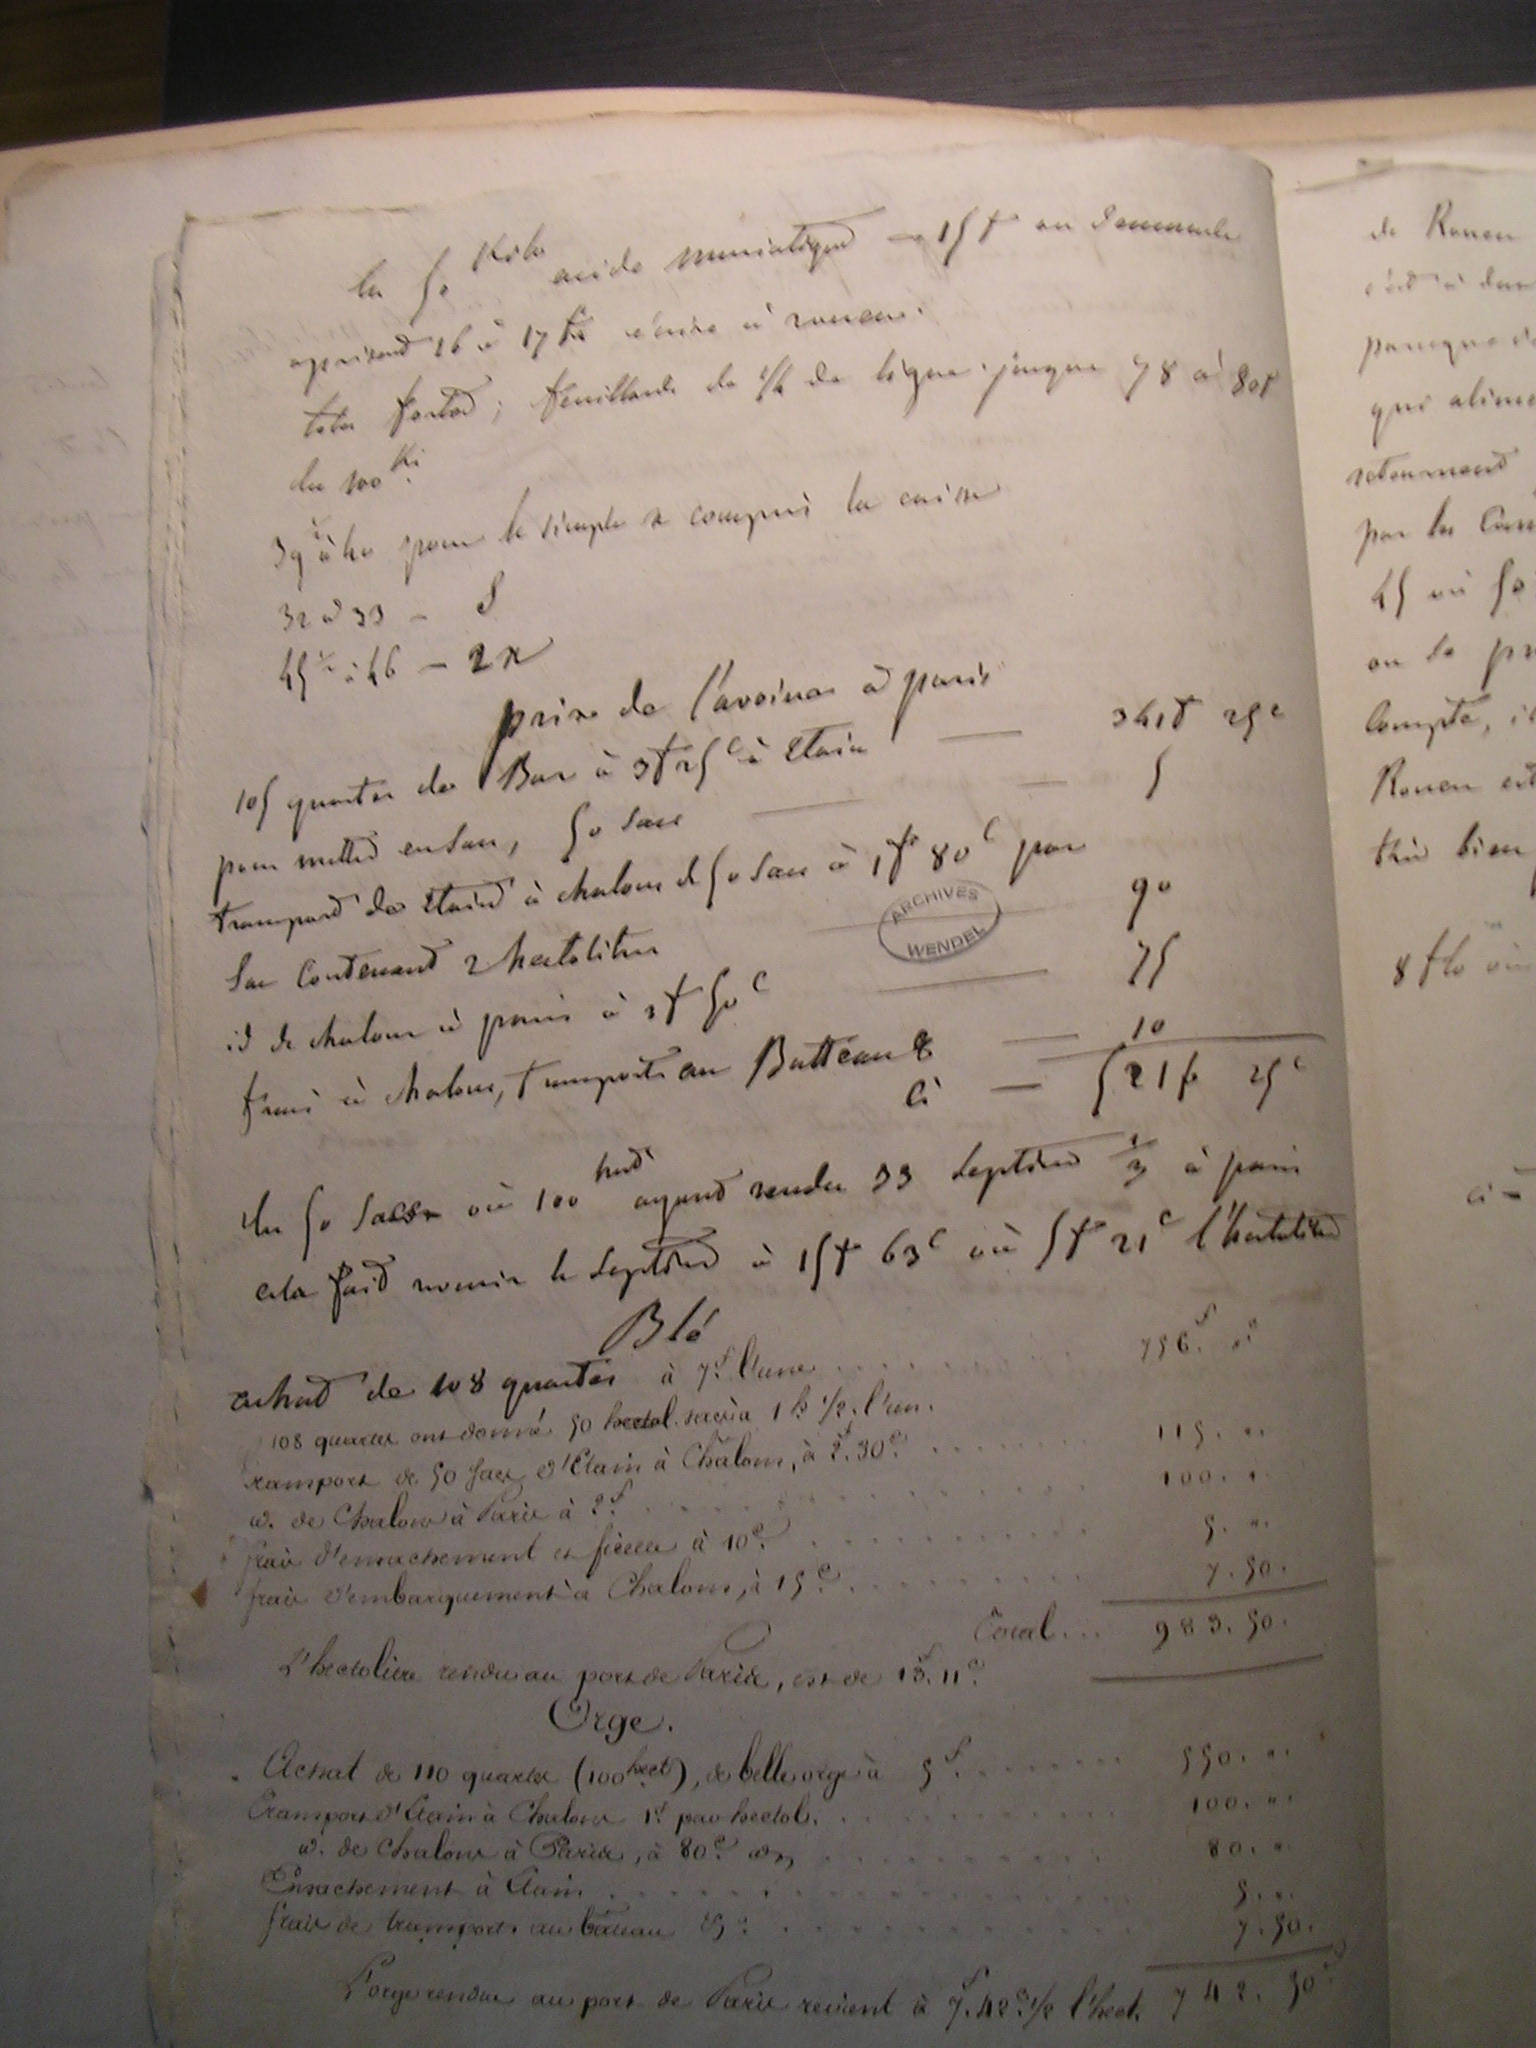 les 50 Kilo acide muriatique — 15 f on demande
à présent 16 à 17 f
tole forte; feuillards de 1/4 de ligne jusque 78 à 80f
les 100 Ki.
39 1/2 à 40 pour le simple x compris la caisse
32 à 33 — S
45 1/2 à 46 — 2 x
prix de l'avoine à paris
105 quartes de Bar à 3f 25c à Etain — 341f 25c
pour mettre en sac, 50 sacs — 5
transport de Etain à chalons de 50 sacs à 1f 80c par
sac contenant 2 hectolitres — 90
id de chalons à paris à 1f 50c — 75
frais à chalons, transports au Batteau & — 10
ci — 521f 25c
les 50 sacs ou 100 hect ayant rendu 33 septiers 1/3 à paris
cela fait revenir le septier à 15f 63c ou 5f 21c l'hectolitre
Blé
achat de 108 quartes à 7f l'une . . . . 756.f "c
108 quartes ont donné 50 hectol. sacs à 1 h 1/2. l'un.
transport de 50 sacs d'Etain à Châlons, à 2f.30c . . . . 115. "
id. de Chalons à Paris à 2f. . . . 100. "
frais d'ensachement et ficelle à 10c. . . . 5. "
frais d'embarquement à Chalons, à 15c. . . . 7.50.
Total... 983.50.
L'hectolitre rendu au port de Paris, est de 13f.11c.
Orge.
Achat de 110 quartes (100 hect), de belle orge à 5f. . . . 550. "
Transport d'Etain à Chalons 1f. par hectol. . . . 100. "
id. de Chalons à Paris, à 80c. id. . . . 80. "
Ensachement à Etain . . . 5. "
frais de transport au bateau . . . 7.50.
L'orge rendue au port de Paris revient à 7f.42c.1/2 l'hect. 742.50c
ARCHIVES
WENDEL
de Rouen
c'est à
parceque
qui
par les
45 ou 50
on se
Compte,
Rouen est
très bien
8 f
ci —